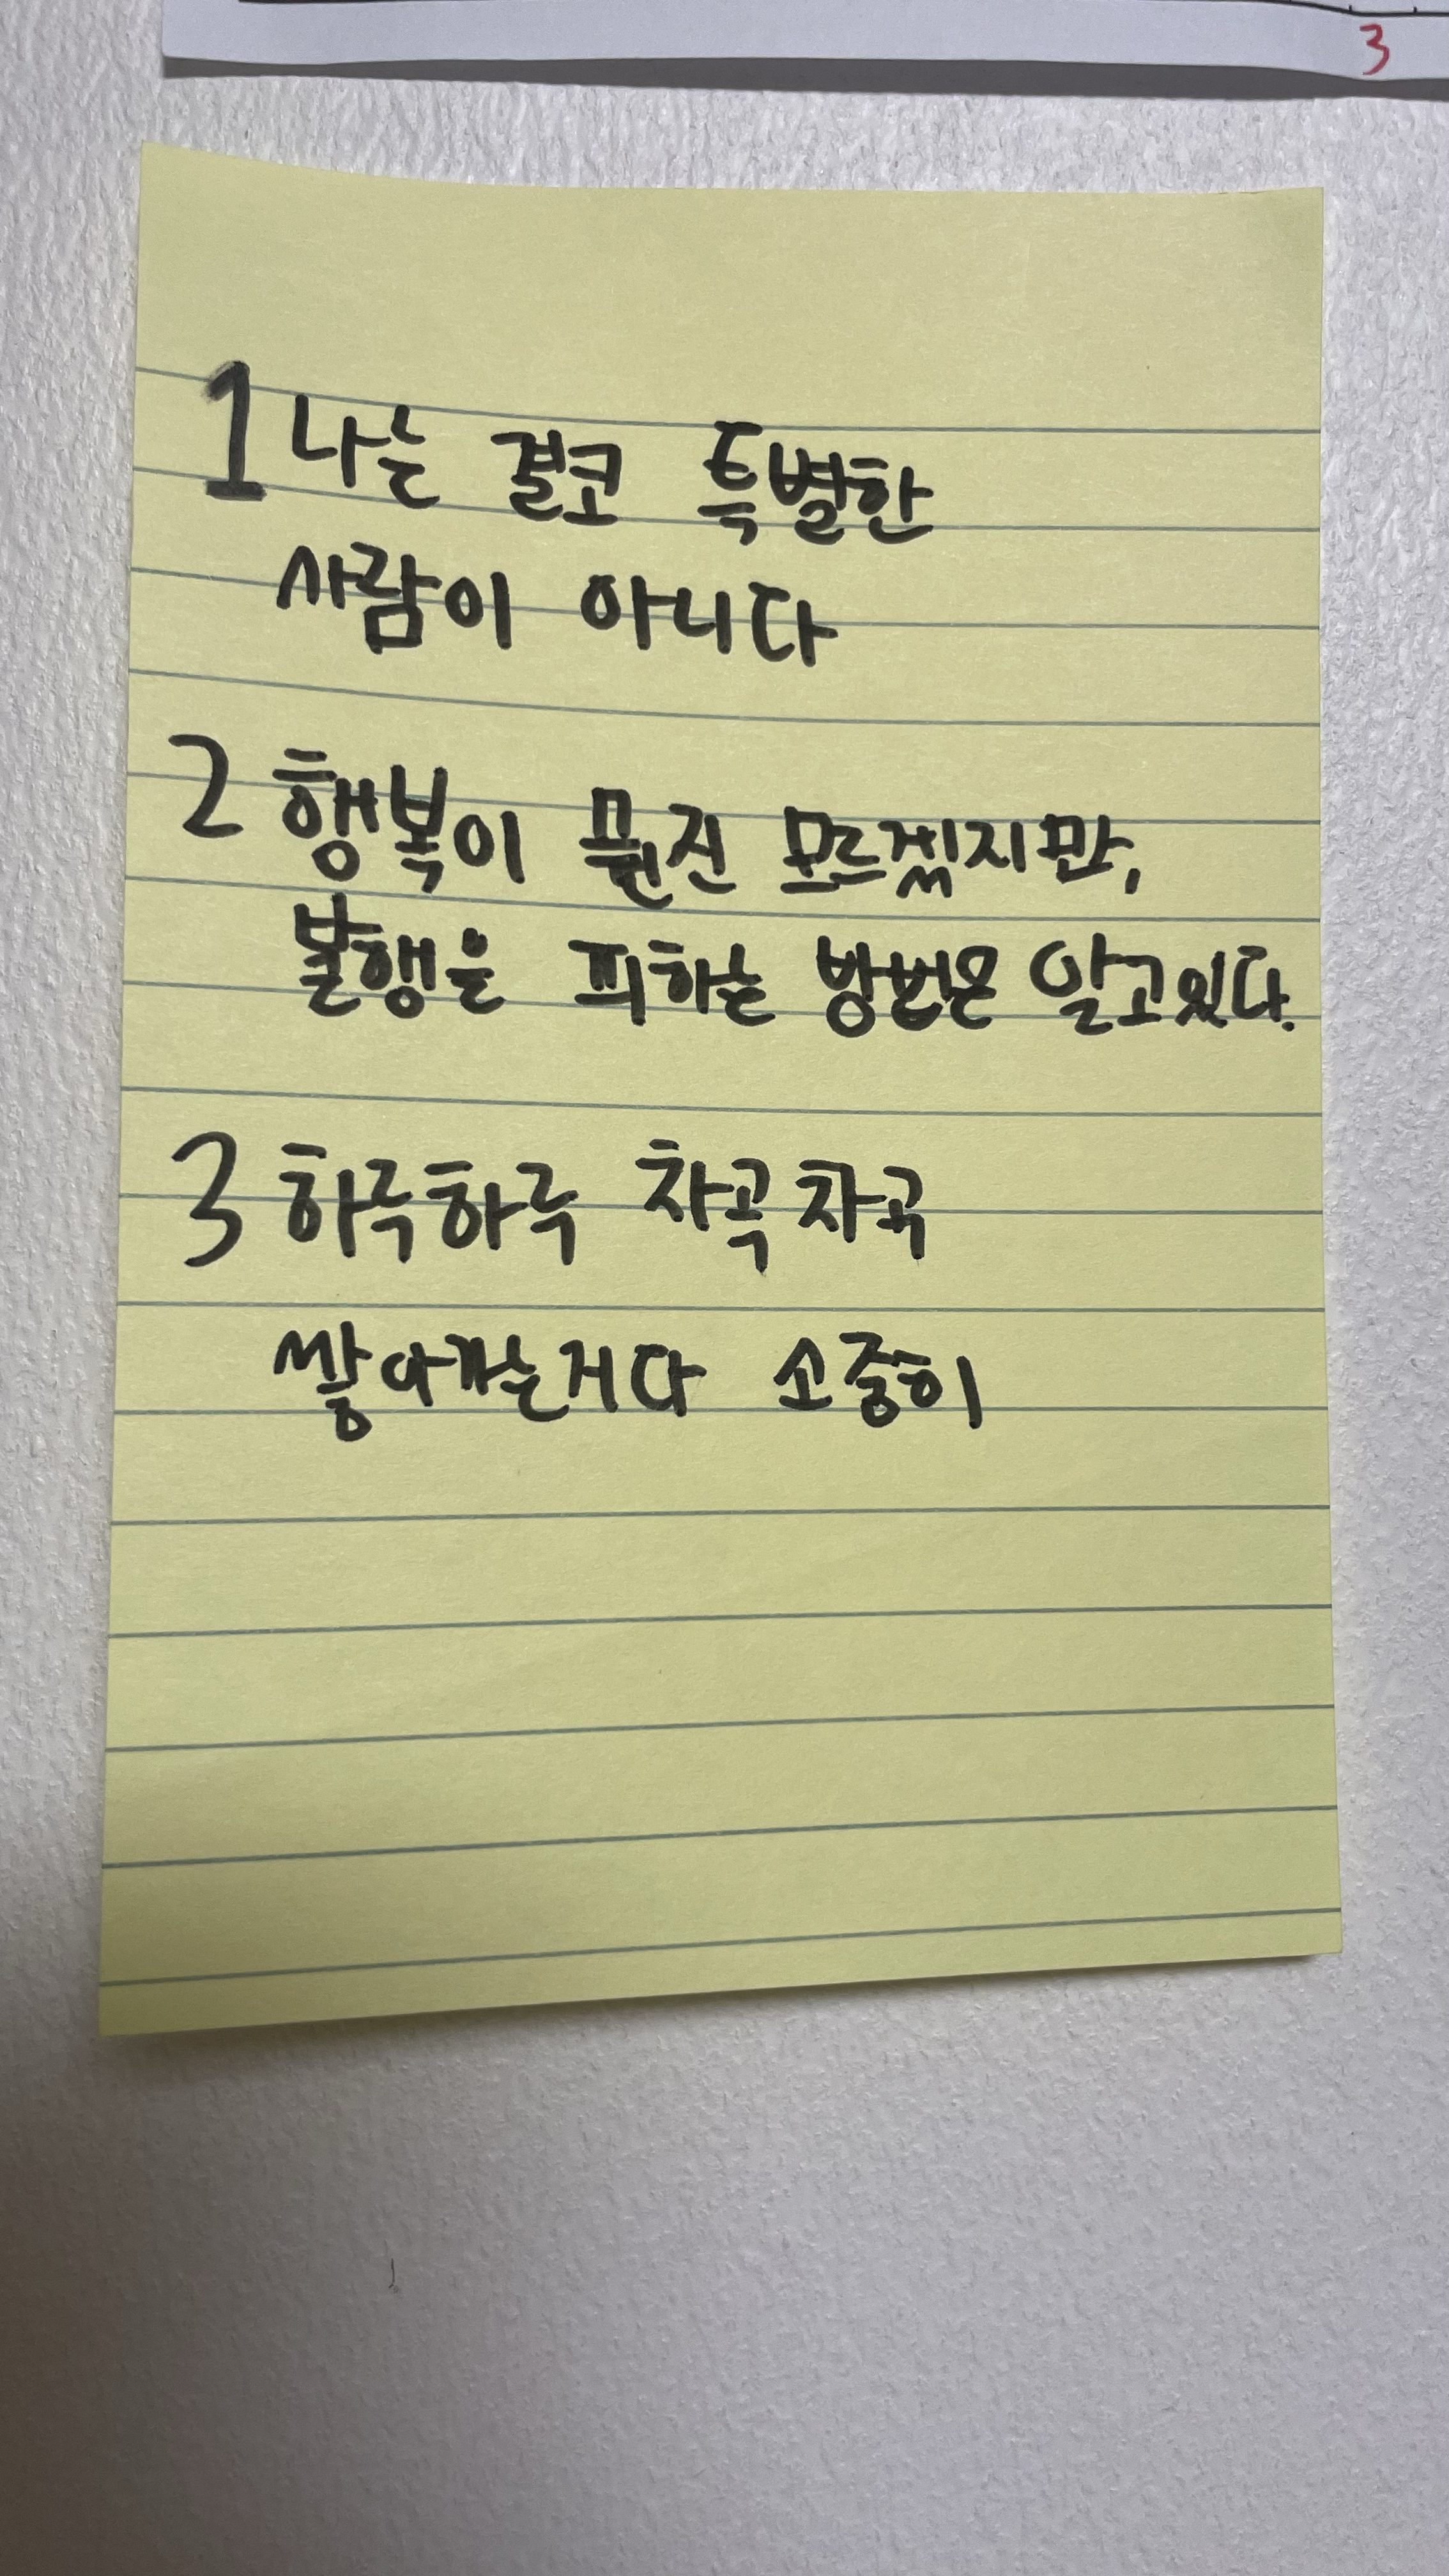 3
1 나는 결코 특별한
사람이 아니다
2 행복이 뭔진 모르겠지만,
불행을 피하는 방법은 알고있다.
3 하루하루 차곡차곡
쌓아가는거다 소중히